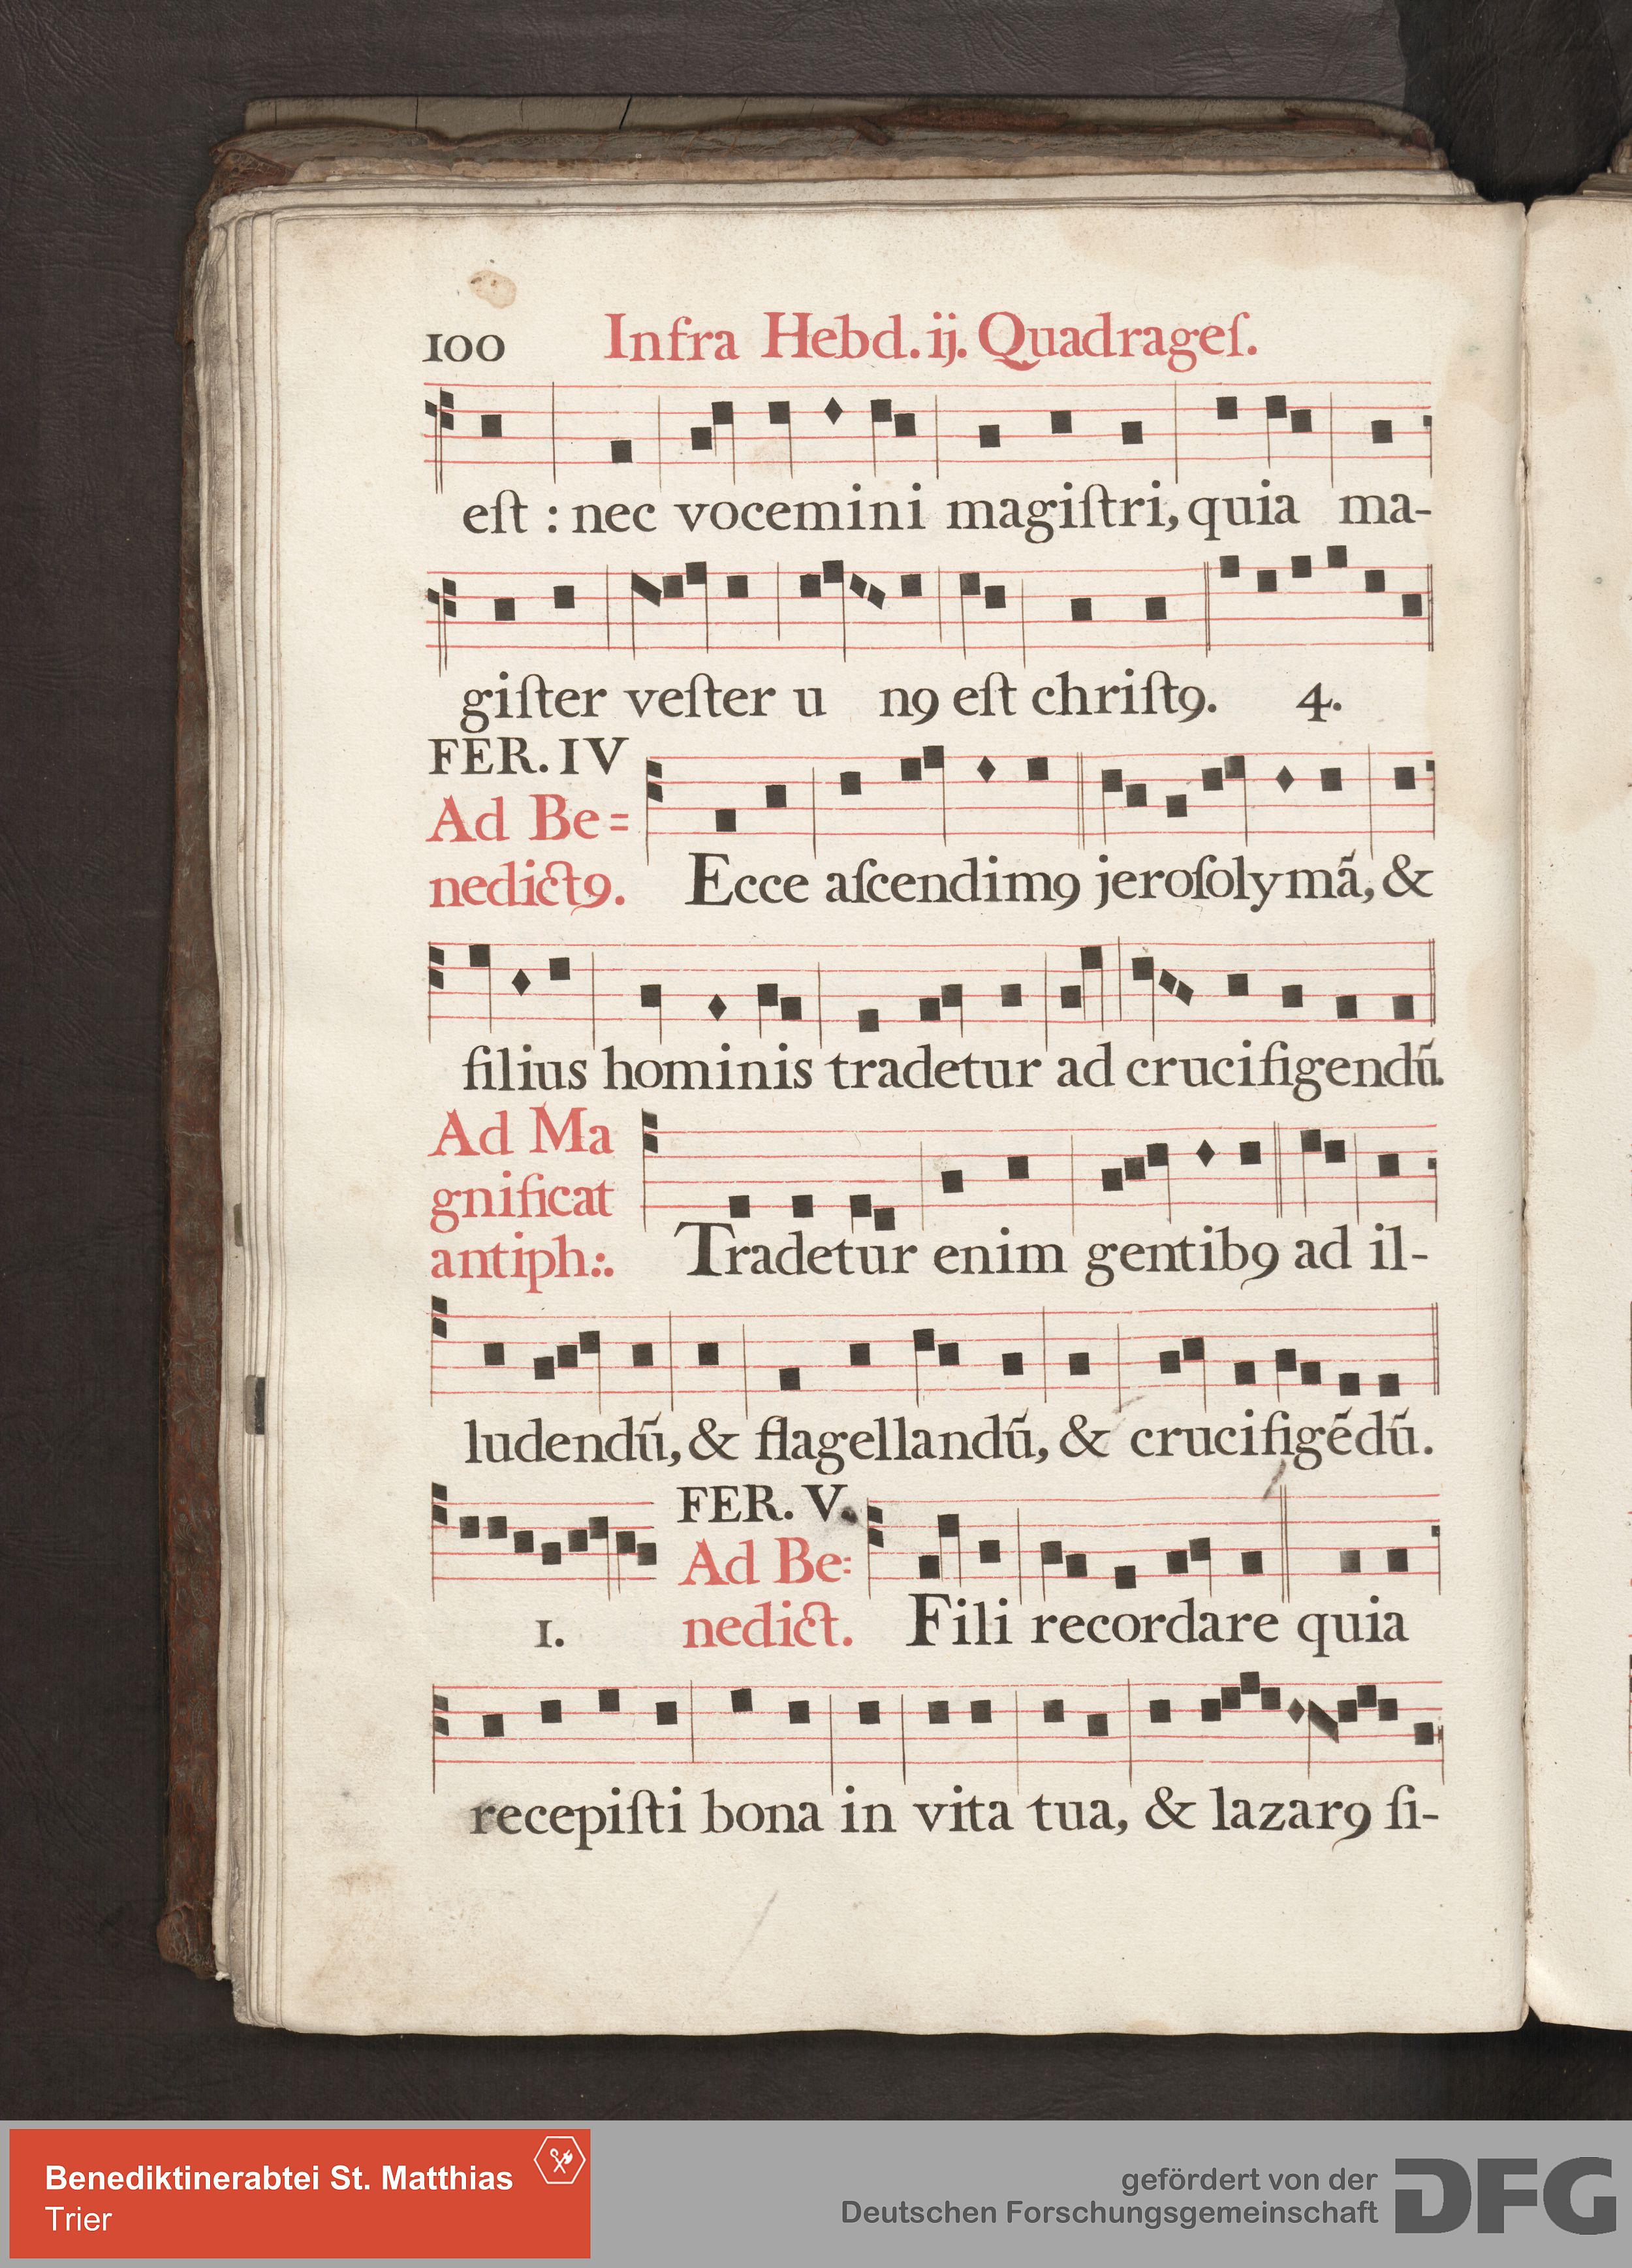 100 Infra Hebd. ij. Quadrageſ.
eſt : nec vocemini magiſtri, quia ma-
giſter veſter u nꝯ eſt chriſtꝯ. 4.
FER. IV
Ad Be=
nedictꝯ. Ecce aſcendimꝯ jeroſolymã, &
filius hominis tradetur ad crucifigendũ.
Ad Ma
gnificat
antiph:. Tradetur enim gentibꝯ ad il-
ludendũ, & flagellandũ, & crucifigẽdũ.
FER. V.
Ad Be:
1. nedict. Fili recordare quia
recepiſti bona in vita tua, & lazarꝯ ſi-
Benediktinerabtei St. Matthias
Trier
gefördert von der
Deutschen Forschungsgemeinschaft
DFG